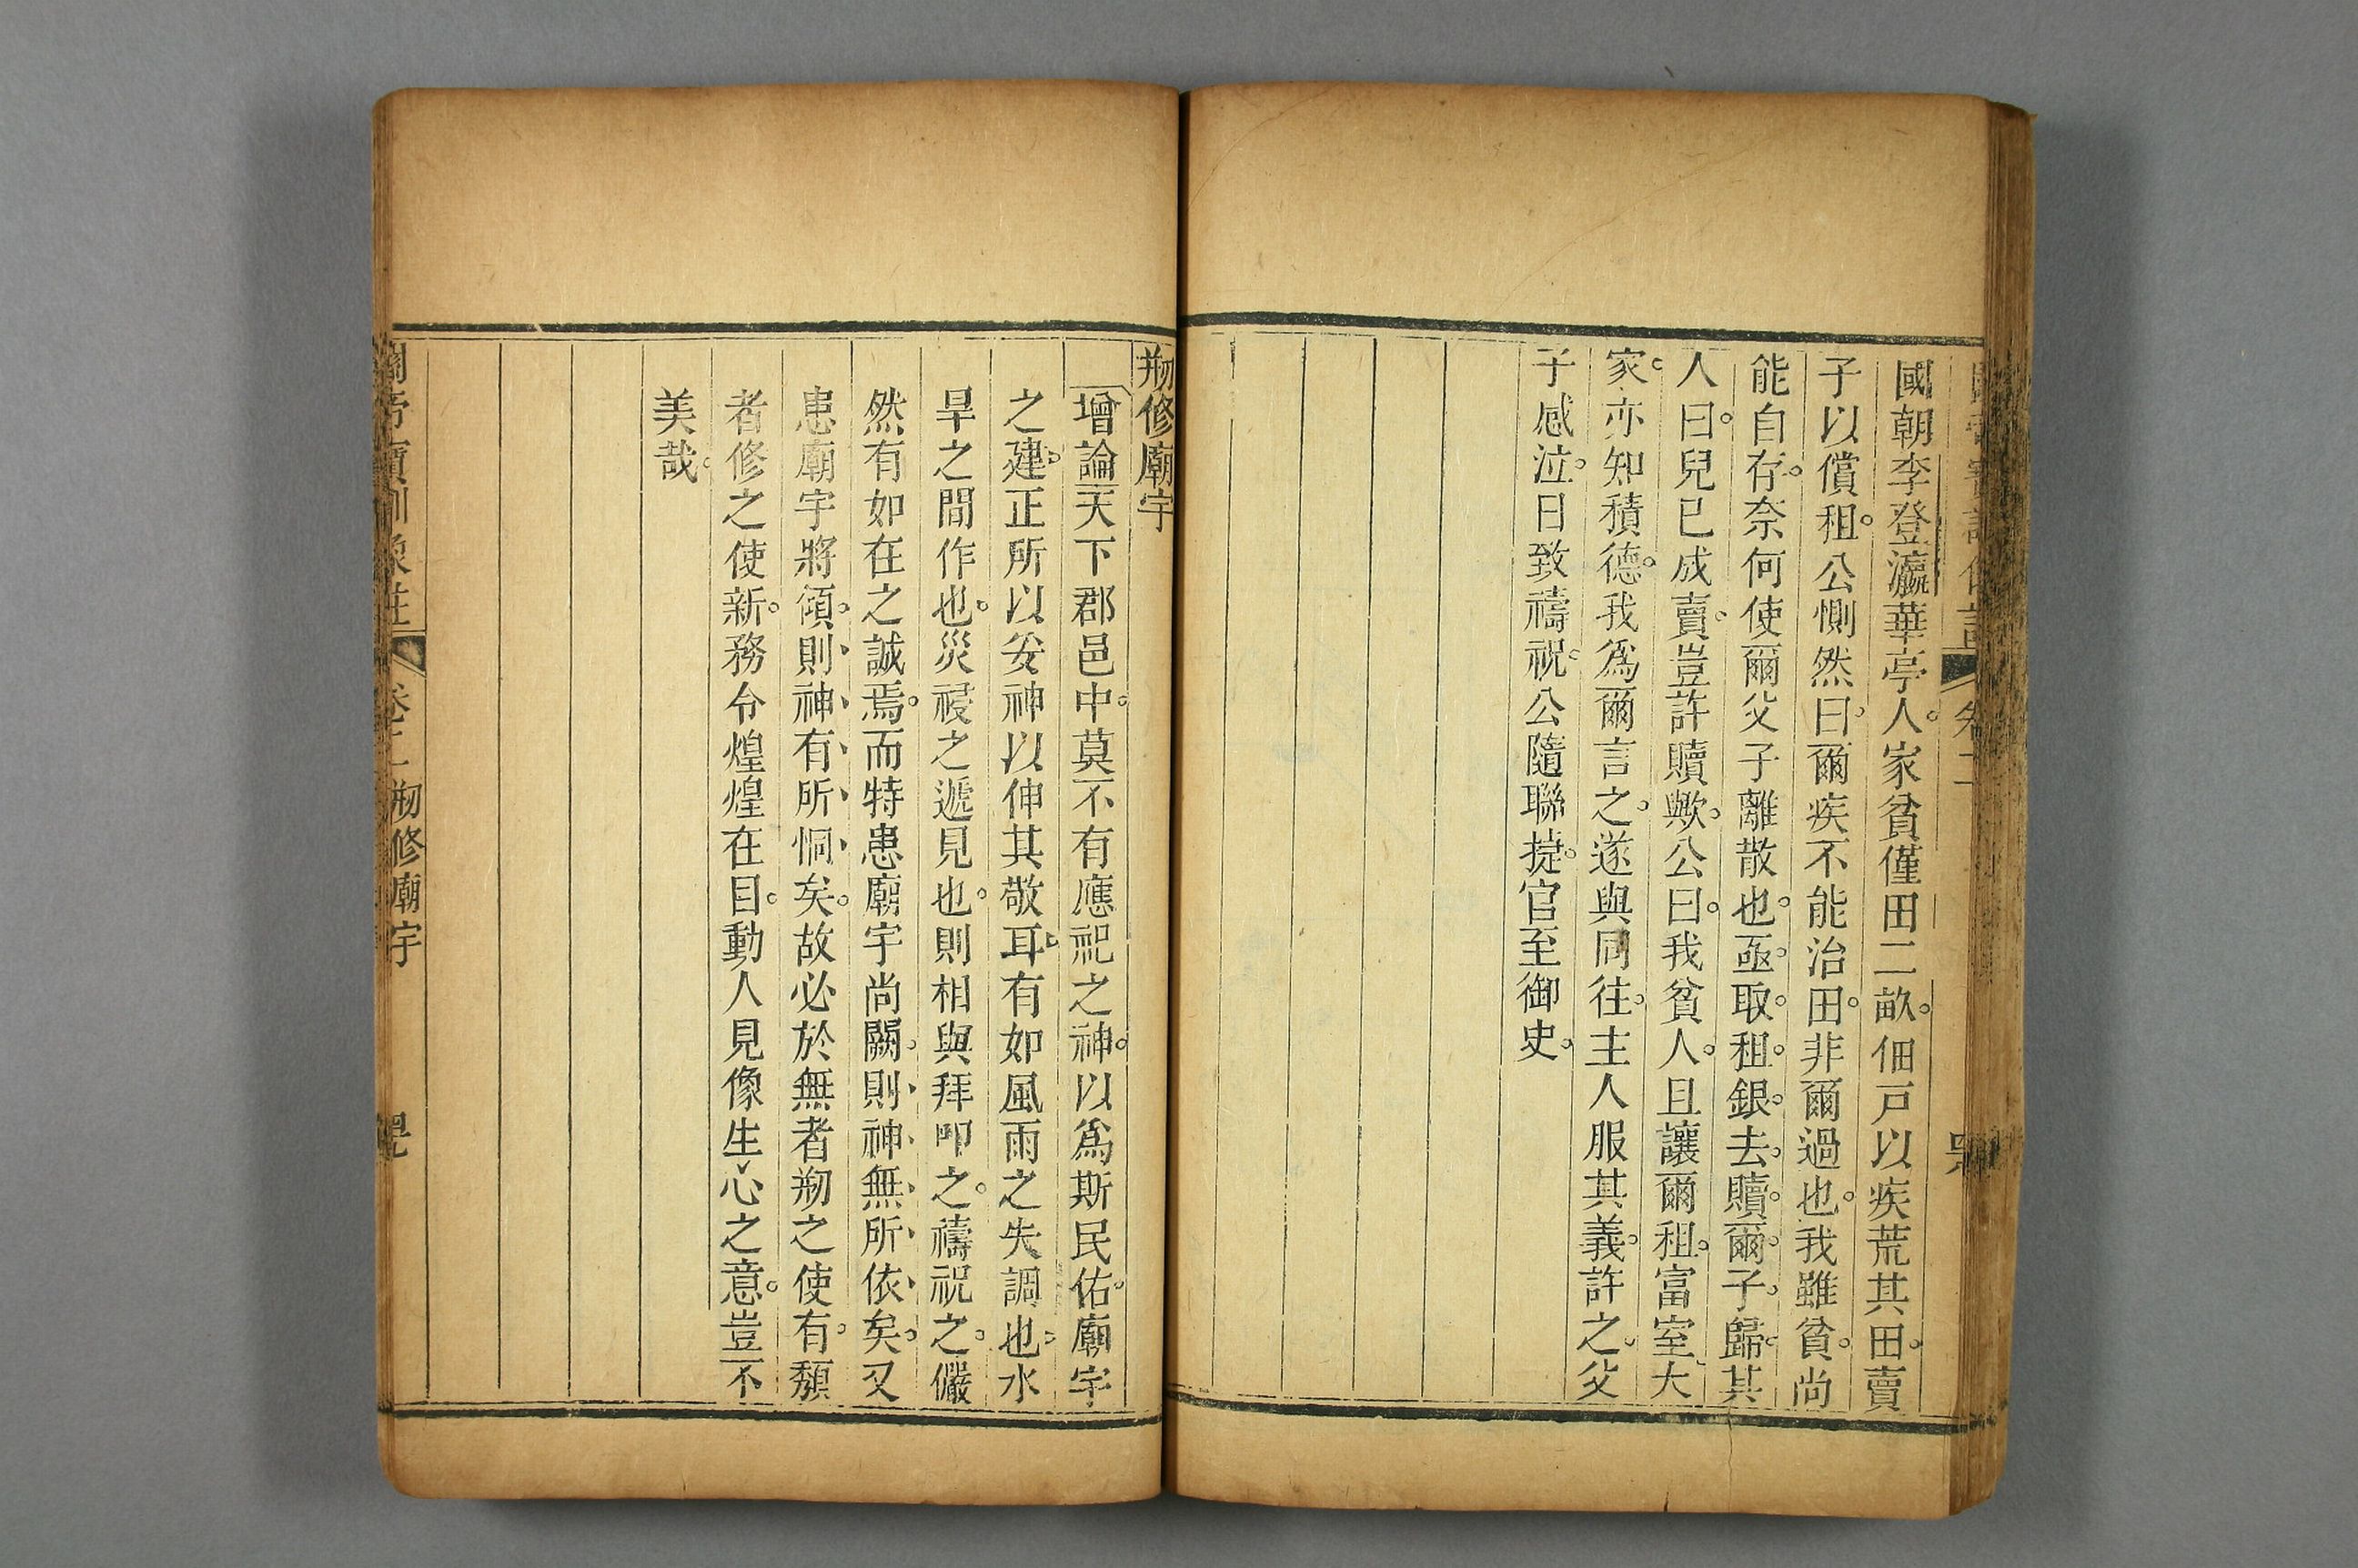 國朝李登瀛華亭人家貧僅田二畝佃戸以疾荒其田賣
子以償租公惻然曰爾疾不能治田非爾過也我雖貧尚
能自存奈何使爾父子離散也亟取租銀去贖爾子歸其
人曰兒已成賣豈許贖歟公曰我貧人且讓爾租富室大
家亦知積德我爲爾言之遂與同往主人服其義許之父
子感泣日致禱祝公隨聯捷官至御史
剏修廟宇
增論天下郡邑中莫不有應祀之神以爲斯民佑廟宇
之建正所以妥神以伸其敬耳有如風雨之失調也水
旱之間作也災祲之遞見也則相與拜叩之禱祝之儼
然有如在之誠焉而特患廟宇尚闕則神無所依矣又
患廟宇將傾則神有所恫矣故必於無者剏之使有頽
者修之使新務令煌煌在目動人見像生心之意豈不
美哉
關帝寶訓像註 卷二 剏修廟宇